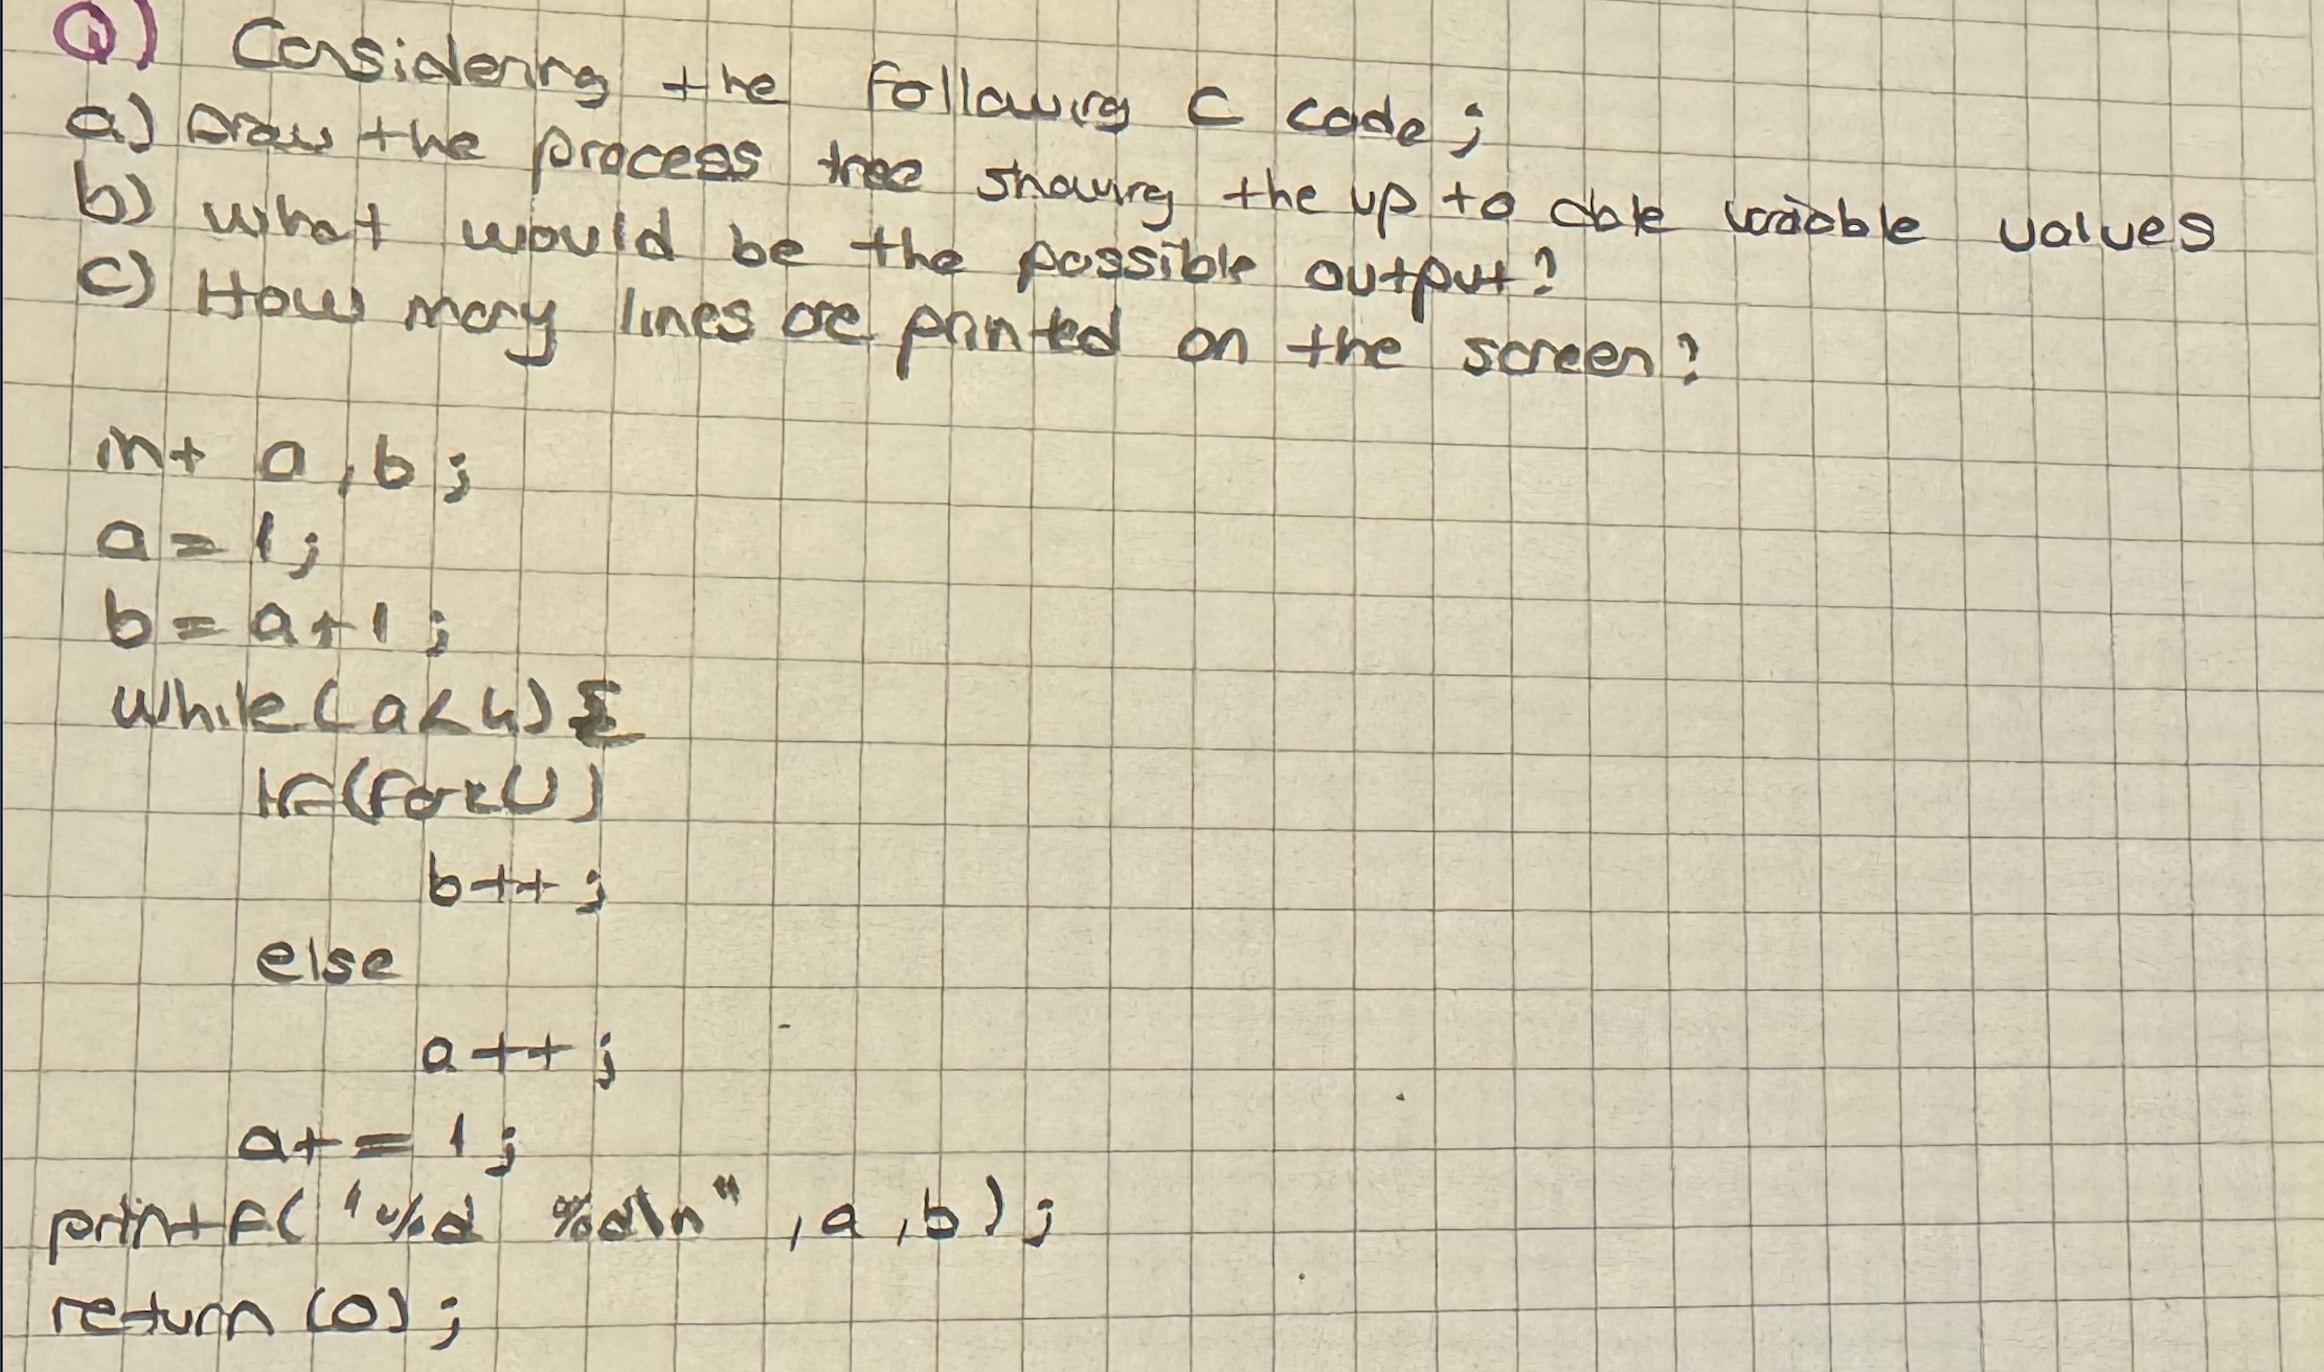 Q) Considering the following C code;
a) Draw the process tree showing the up to date variable values
b) what would be the possible output?
c) How many lines are printed on the screen?
int a, b;
a = 1;
b = a+1;
while(a<4){
if(fork())
b++;
else
a++;
a+=1;
printf("%d %d\n", a, b);
return (0);